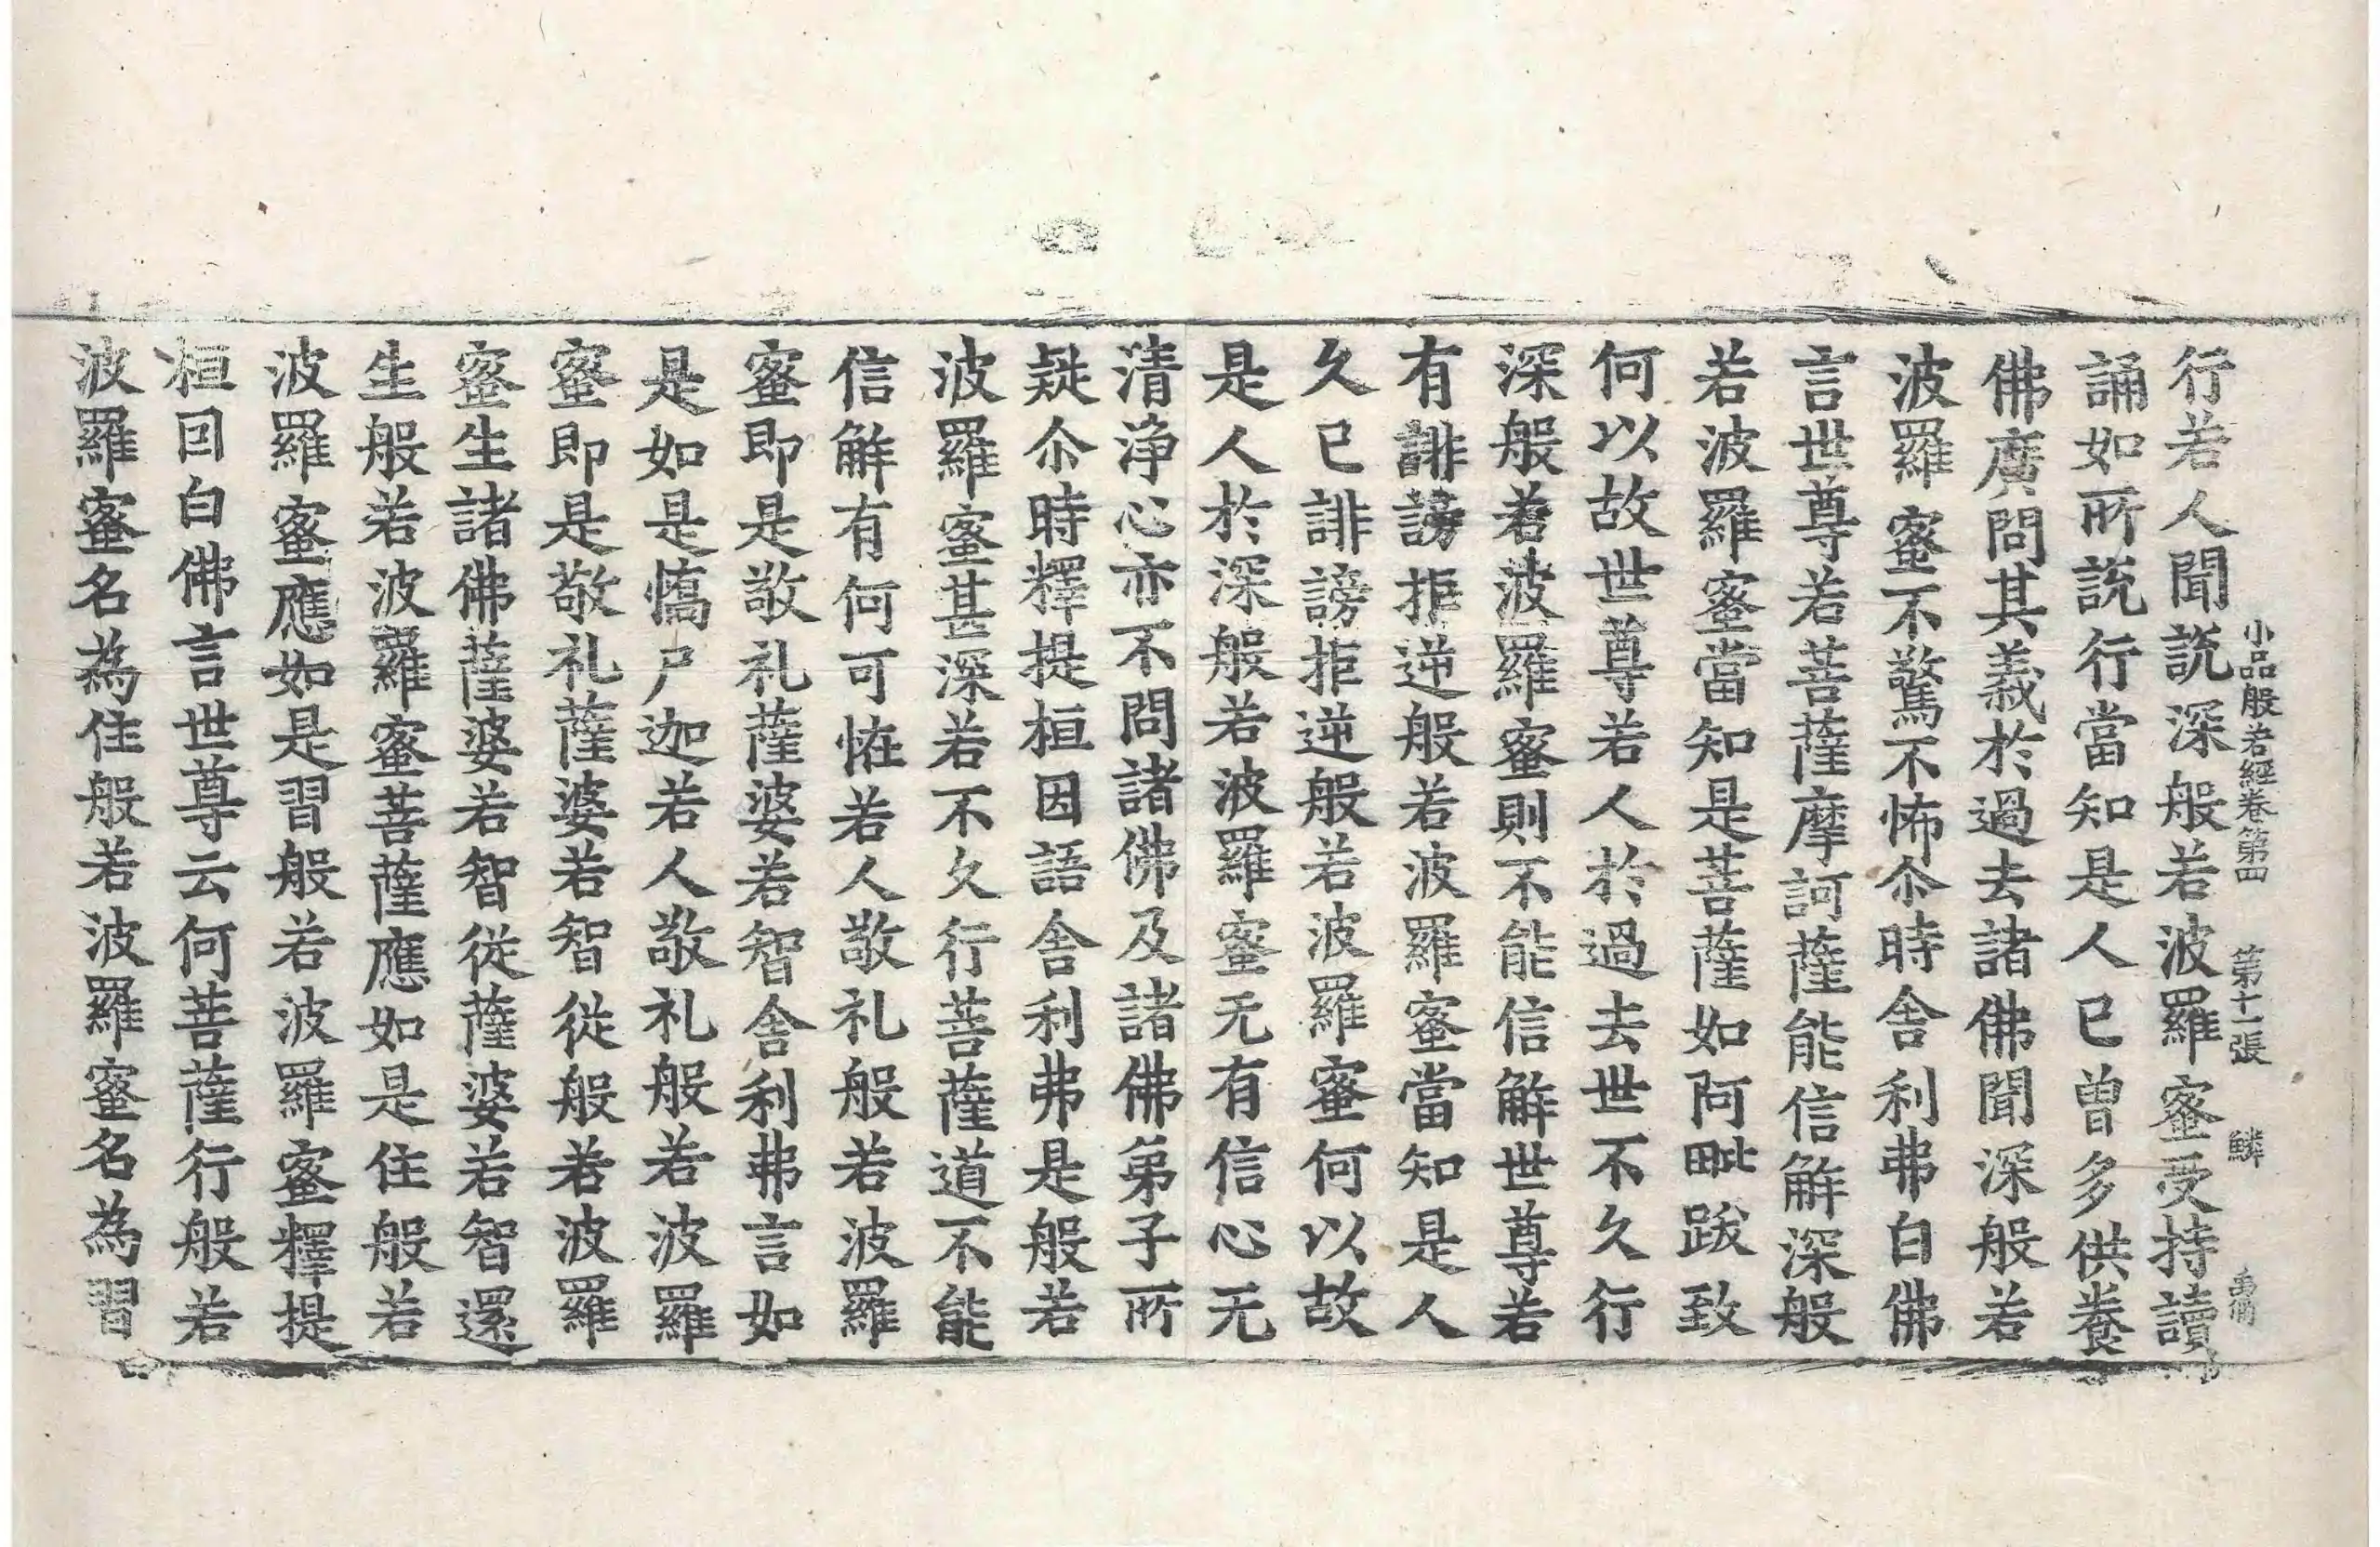 小品般若經卷第四 第十一張 鱗
行若人聞說深般若波羅蜜受持讀
誦如所說行當知是人已曾多供養
佛廣問其義於過去諸佛聞深般若
波羅蜜不驚不怖尒時舍利弗白佛
言世尊若菩薩摩訶薩能信解深般
若波羅蜜當知是菩薩如阿毗跋致
何以故世尊若人於過去世不久行
深般若波羅蜜則不能信解世尊若
有誹謗拒逆般若波羅蜜當知是人
久已誹謗拒逆般若波羅蜜何以故
是人於深般若波羅蜜无有信心无
清淨心亦不問諸佛及諸佛弟子所
疑尒時釋提桓因語舍利弗是般若
波羅蜜甚深若不久行菩薩道不能
信解有何可恠若人敬礼般若波羅
蜜即是敬礼薩婆若智舍利弗言如
是如是憍尸迦若人敬礼般若波羅
蜜即是敬礼薩婆若智從般若波羅
蜜生諸佛薩婆若智從薩婆若智還
生般若波羅蜜菩薩應如是住般若
波羅蜜應如是習般若波羅蜜釋提
桓囙白佛言世尊云何菩薩行般若
波羅蜜名為住般若波羅蜜名為習